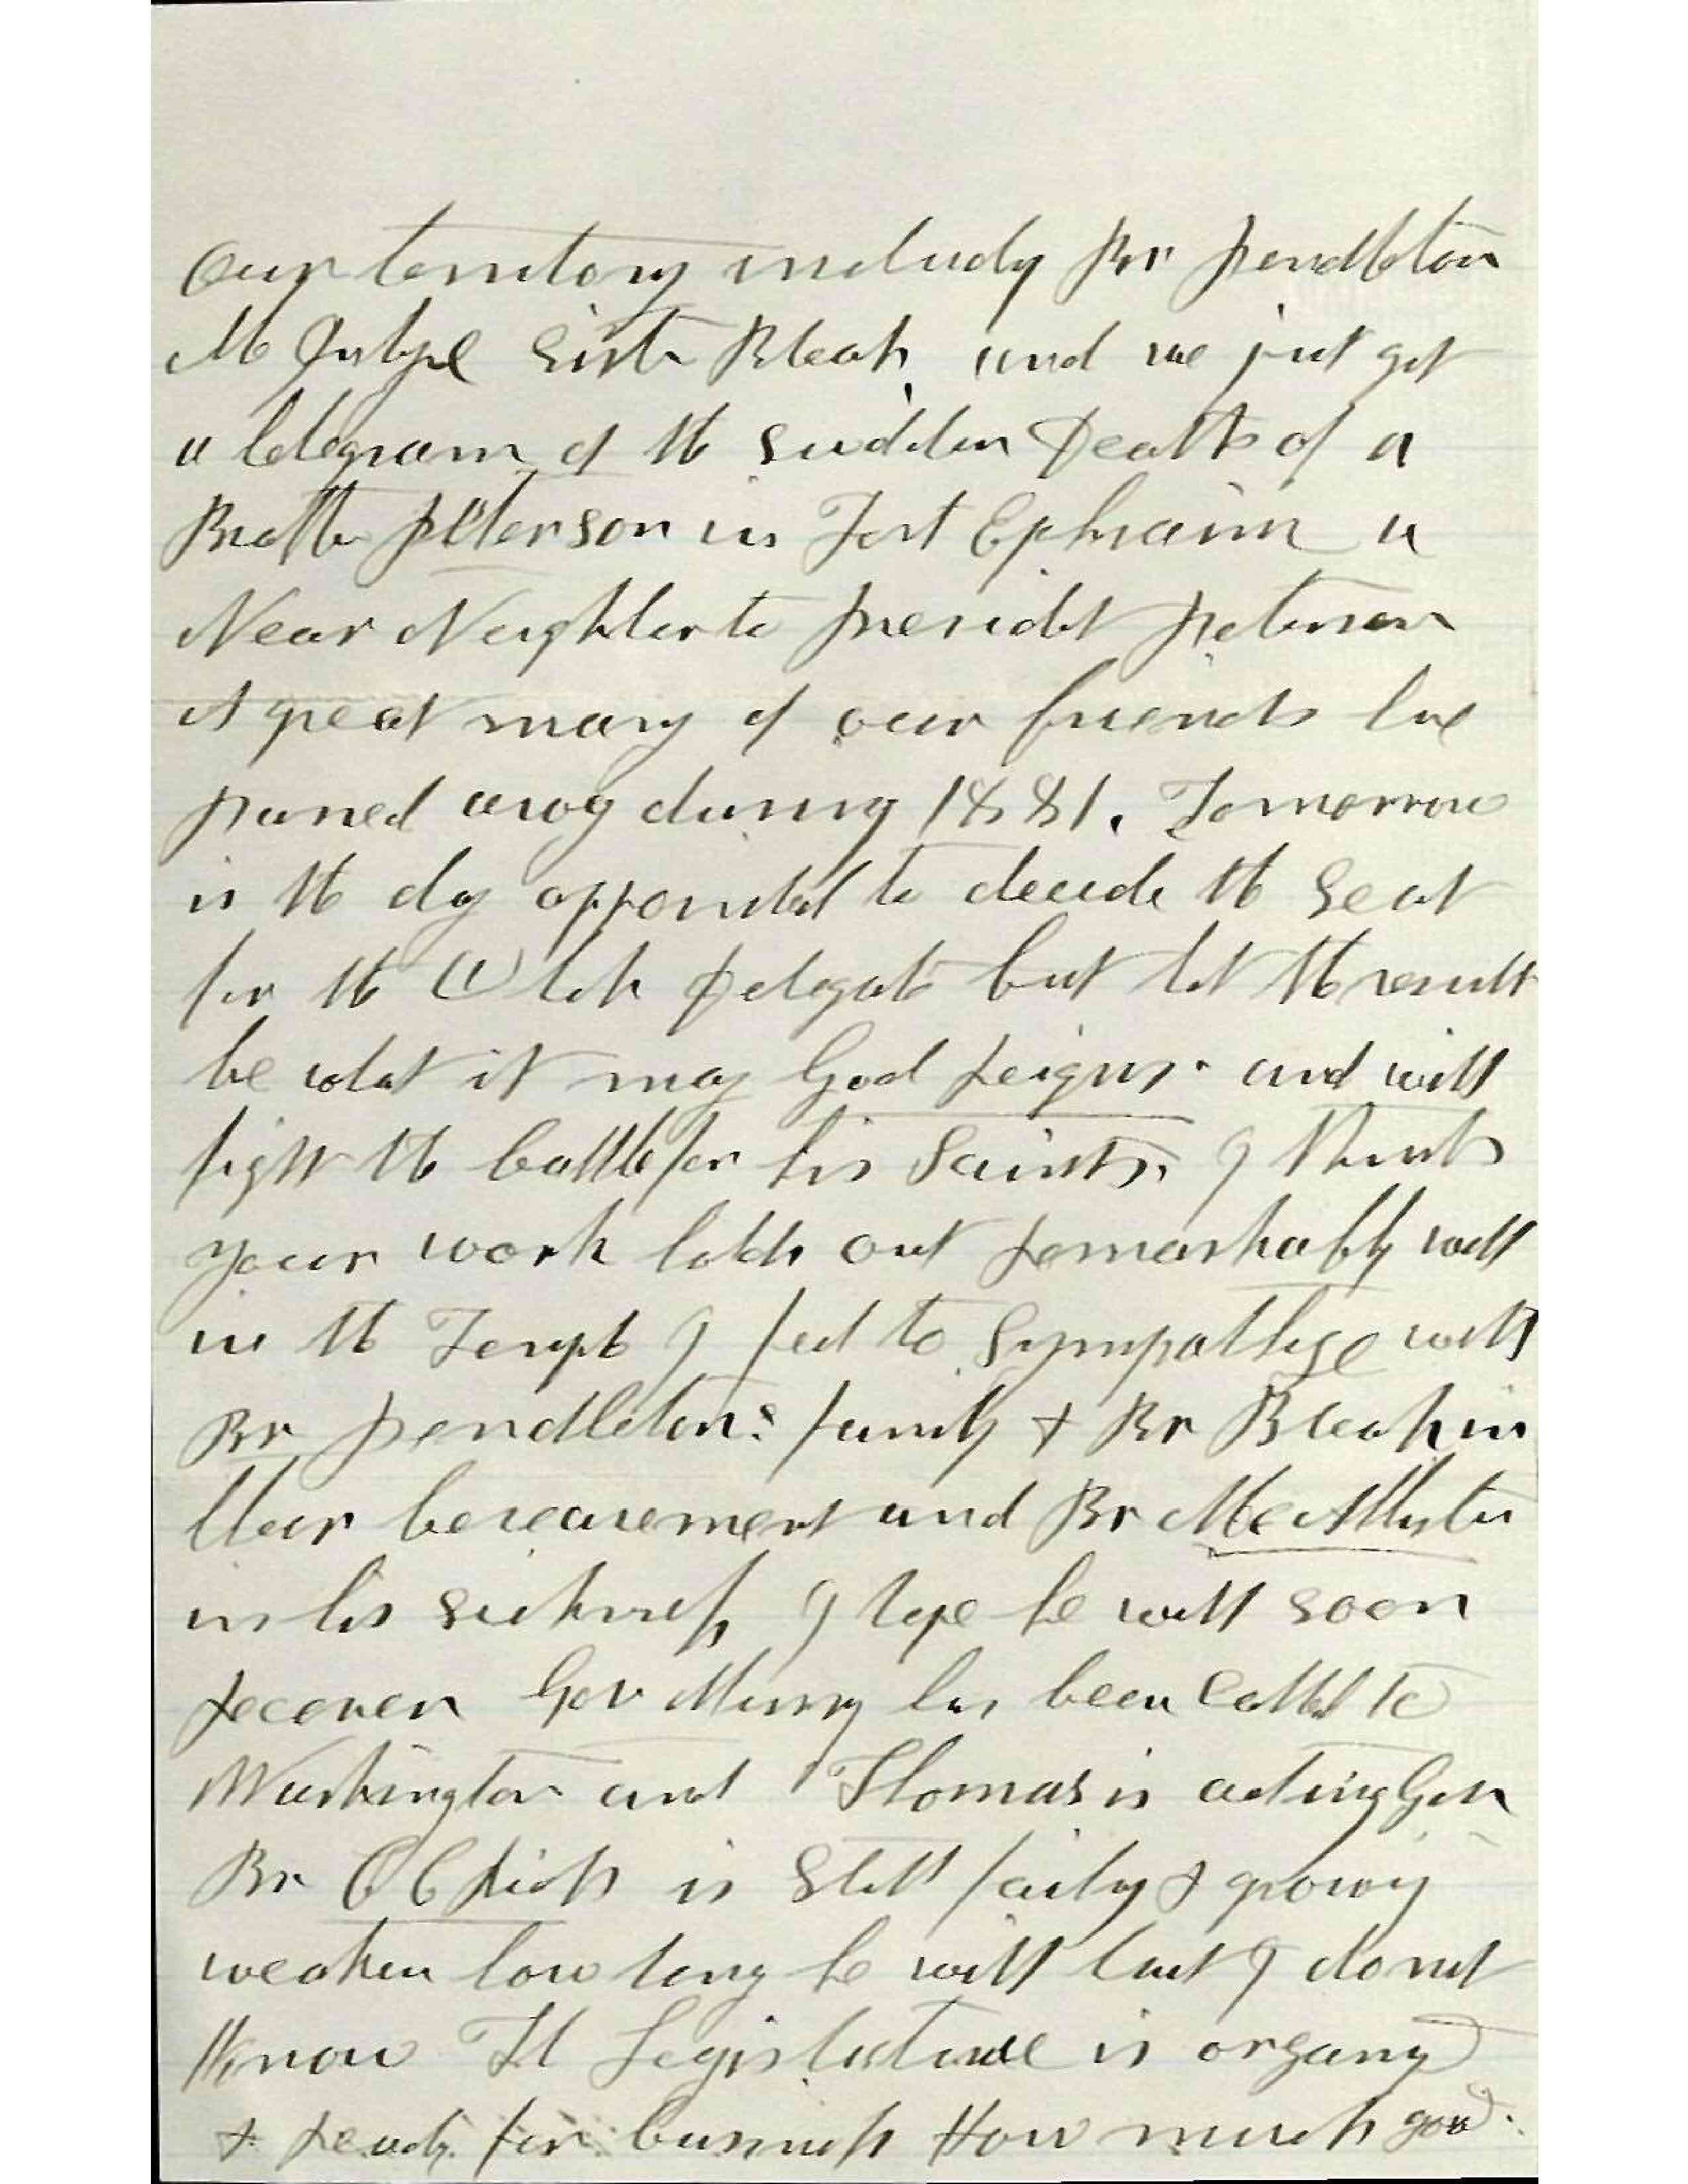 our territory including Br Pendleton
McIntyre Sister Bleak, and we just got
a telegram of the sudden Death of a
Brother Peterson in Fort Ephraim a
Near Neighbor to President Peterson
A great many of our friends have
passed away during 1881. Tomorrow
is the day appointed to decide the Seat
for the Utah Delegate but let the result
be what it may God Reigns. and will
fight the battle for his Saints, I think
your work holds out Remarkably well
in the Temple I feel to Sympathise with
Br Pendletons family & Br Bleak in
their bereavement and Br McAllister
in his sickness I hope he will soon
Recover Gov Murry has been Called to
Washington and Thomas is acting Gov
Br C C Rich is Still failing & growing
weaker how long he will last I do not
Know The Legislature is organized
& Ready for business How much good